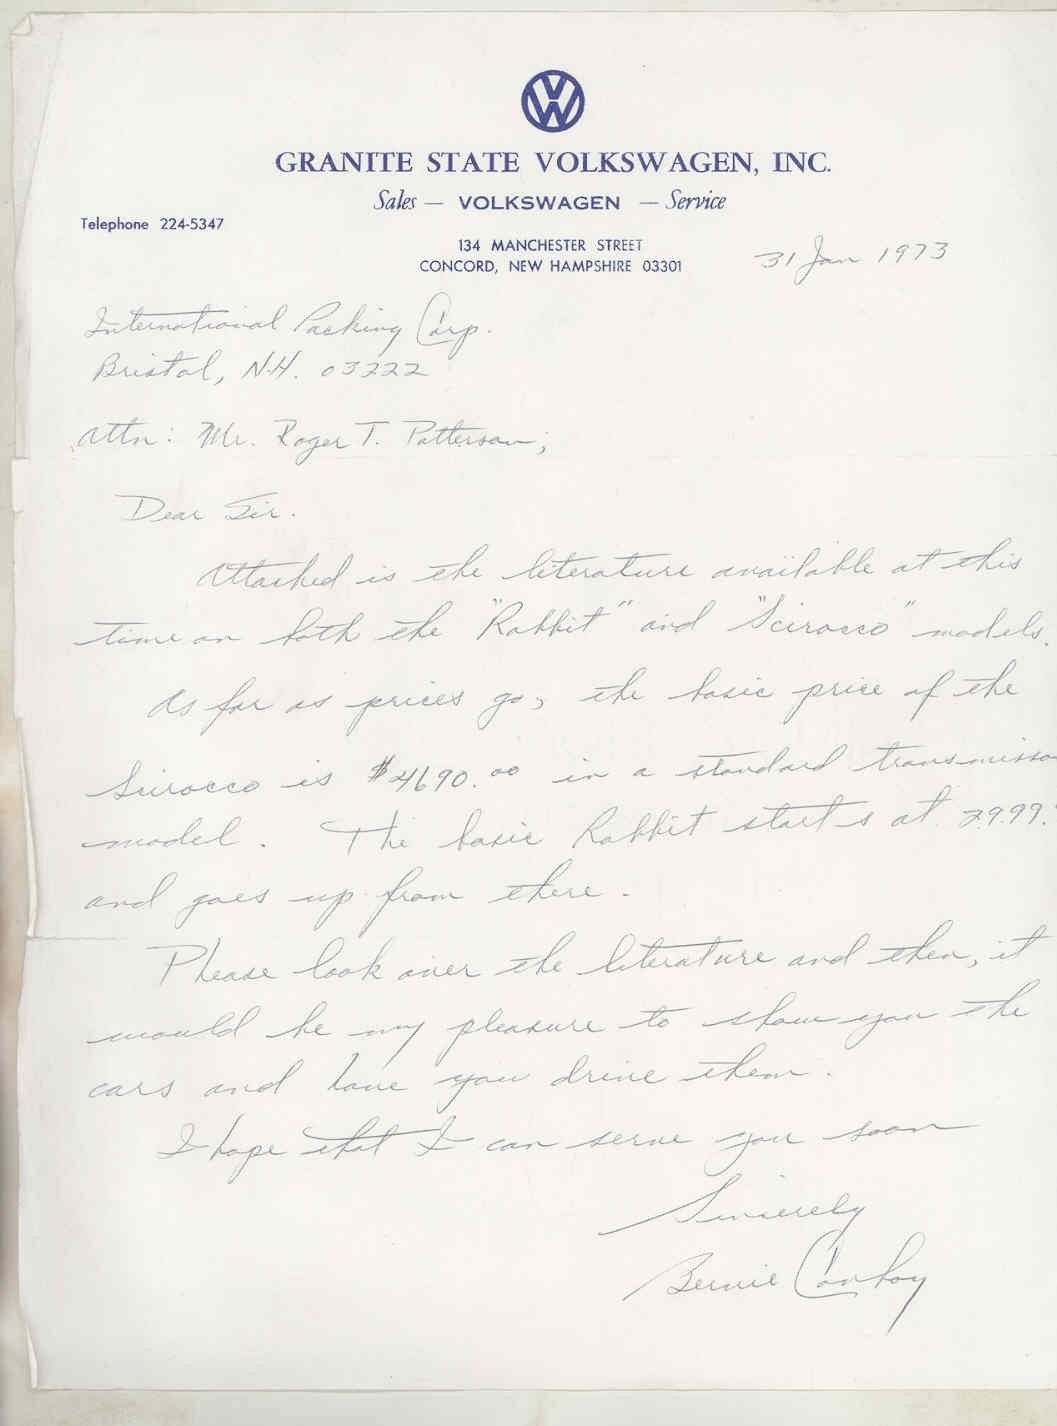 VW
GRANITE STATE VOLKSWAGEN, INC.
Sales — VOLKSWAGEN — Service
Telephone 224-5347
134 MANCHESTER STREET
CONCORD, NEW HAMPSHIRE 03301
31 Jan 1973
International Packing Corp.
Bristol, N.H. 03222
Attn: Mr. Roger T. Patterson,
Dear Sir.
Attached is the literature available at this
time on both the "Rabbit" and "Scirocco" models.
As far as prices go, the basic price of the
Scirocco is $4690.00 in a standard transmisso
model. The basic Rabbit starts at 2999.
and goes up from there.
Please look over the literature and then, it
would be my pleasure to show you the
cars and have you drive them.
I hope that I can serve you soon
Sincerely
Bernie